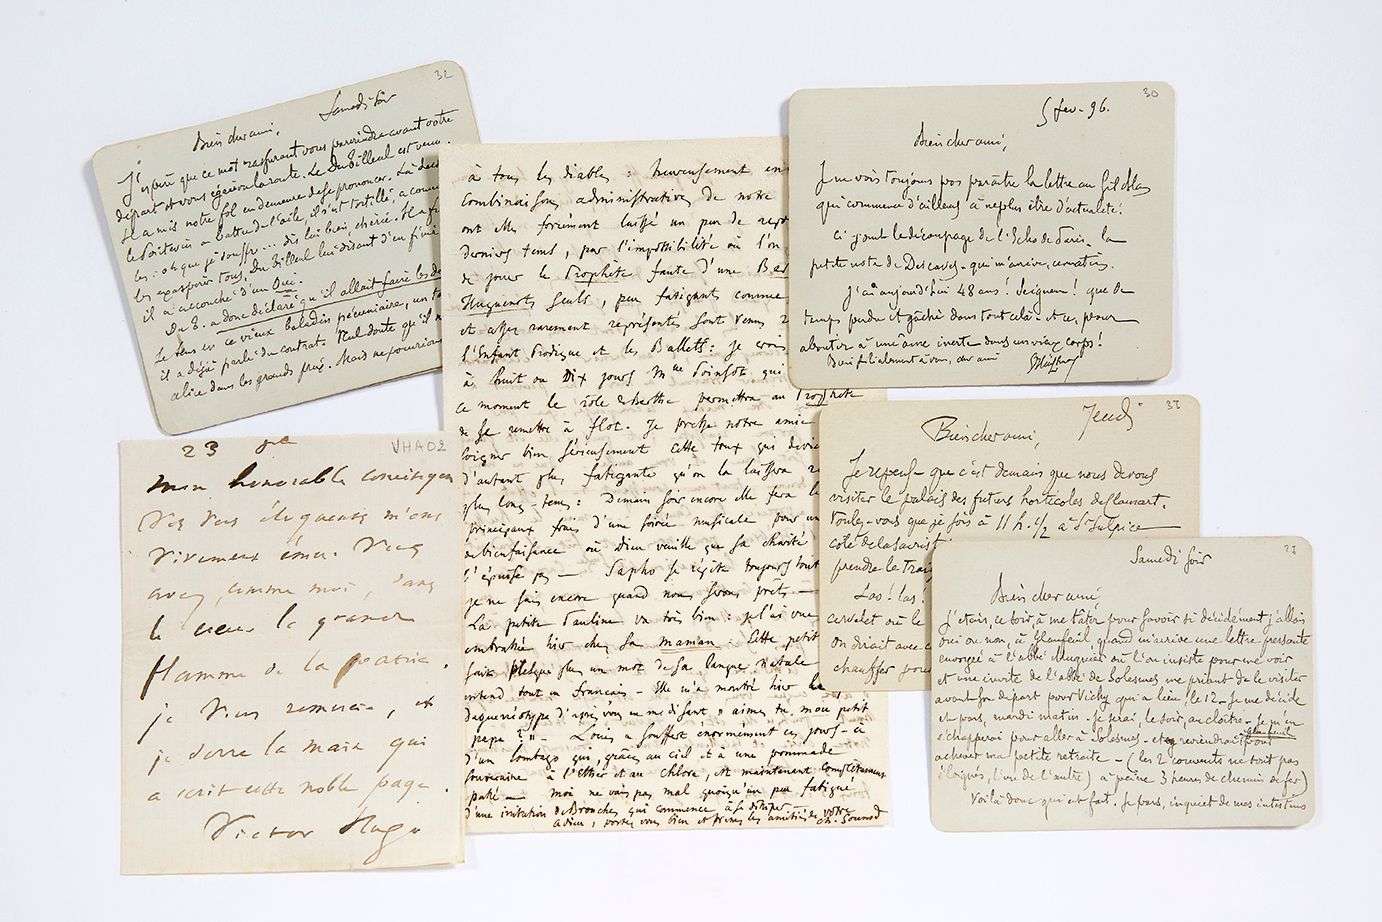 32
Samedi soir
Bien cher ami,
J'espère que ce mot rassurant vous parviendra avant votre
départ et vous égaiera la route. Le Du Tilleul est venu.
Il a mis notre fol en demeure de se prononcer. Là dess
le Poitevin a battu de l'aile, il s'est tortillé, a comm
les : oh que je souffre... dis lui bois, chérie. Il a f
les exaspérer tous, Du Tilleul lui disant d'un f
il a accouché d'un Oui.
Du T. a donc déclaré qu'il allait faire les dé
Le tens est ce vieux baladin pécuniaire, un ta
il a déjà parlé du contrat. Nul doute qu'il n
alice dans les grands prix. Mais ne pourrion
23 Xre
VHA02
Mon honorable concitoyen
Vos vers éloquents m'ont
vivement ému. Vous
avez, comme moi, dans
le coeur la grande
flamme de la patrie.
je vous remercie, et
je serre la main qui
a écrit cette noble page.
Victor Hugo
à tous les diables : heureusement
Combinaisons administratives de notre
ont elles forcément laissé un peu de rep
derniers tems, par l'impossibilité où l'on
de jouer le Prophète faute d'une Ber
Huguenots seuls, peu fatigants comme
et assez rarement représentés sont venus
l'Enfant Prodigue et les Ballets : je crois
à huit ou Dix jours Mme Poinsot qui
ce moment le rôle de Berthe permettra au Prophète
de se remettre à flot. Je presse notre amie
soigner bien sérieusement cette toux qui devie
d'autant plus fatigante qu'on la laissera
plus long-tems : Demain soir encore elle fera l
principaux frais d'une soirée musicale pour un
de bienfaisance où Dieu veuille que sa charité
l'épuise pas — Sapho se répète toujours tout
je ne sais encore quand nous serons prêts —
La petite Pauline va très bien : je l'ai vue
embrassée hier chez sa maman. Cette petit
sait presque plus un mot de sa langue natale
entend tout en Français — Elle m'a montré hier le
Daguerréotype d'après vous en me disant "aimes tu mon petit
papa ?" — Louis a souffert énormément ces jours-ci
d'un lombago qui, grâce au ciel et à une pommade
souveraine à l'Ether et au chlore, est maintenant complètement
passé — moi ne vais pas mal quoiqu'un peu fatigué
d'une irritation de Bronches qui commence à se dissiper —
adieu, portez vous bien et prenez les amitiés de votre
Ch. Gounod
30
5 fev. 96.
Bien cher ami,
Je ne vois toujours pas paraître la lettre au Gil Blas
qui commence d'ailleurs à ne plus être d'actualité !
Ci joint le découpage de l'Echo de Paris — la
petite note de Descaves — qui m'arrive, ce matin.
J'ai aujourd'hui 48 ans ! Seigneur ! que de
temps perdu et gâché dans tout cela — et ce, pour
aboutir à une âme inerte dans un vieux corps !
Bien filialement à vous, cher ami
GHuysmans
Jeudi
Bien cher ami,
Je repense que c'est demain que nous devons
visiter le palais des futurs horticoles de Clamart.
Voulez-vous que je sois à 11 h. 1/2 à St Sulpice
côté de la sacrist
prendre le tra
Las ! las !
cervelet où le
on dirait avec
chauffer pour
Samedi soir
Bien cher ami,
J'étais, ce soir, à me tâter pour savoir si décidément j'allais
oui ou non, à Glanfeuil quand m'arrive une lettre pressante
envoyée à l'abbé Mugnier où l'on insiste pour me voir
et une invite de l'abbé de Solesmes me priant de le visiter
avant son départ pour Vichy qui a lieu, le 12 — je me décide
et pars, mardi matin. Je serai, le soir, au cloître. Je m'en
échapperai pour aller à Solesmes — et reviendrai à Glanfeuil
achever ma petite retraite — (les 2 couvents ne sont pas
éloignés, l'un de l'autre) à peine 3 heures de chemin de fer)
Voilà donc qui est fait. Je pars, inquiet de mes intestins